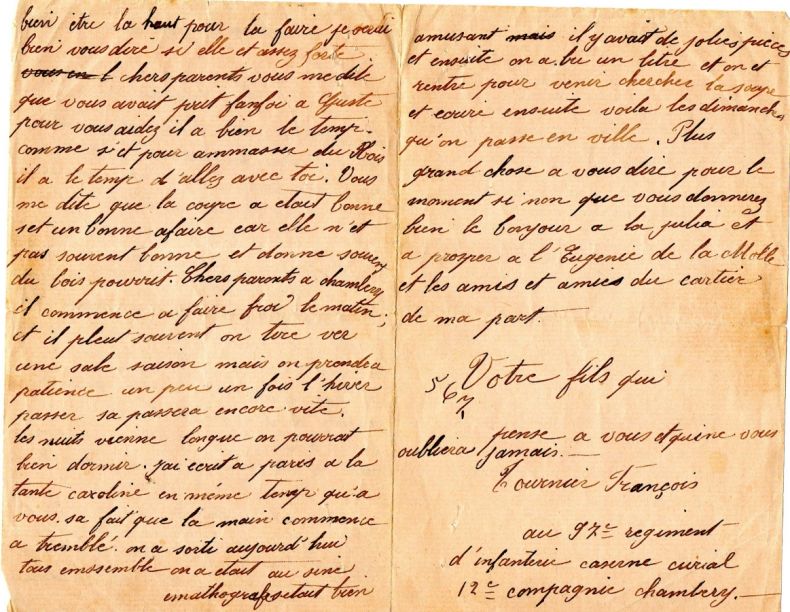 bien etre la haut pour la faire je
bien vous dire si elle et assez forte
vous en chers parents vous me dite
que vous avait prit fanfoi a
pour vous aidez il a bien le temp.
comme s'et pour ammasser du Bois
il a le temp d'allez avec toi. Vous
me dite que la coupe a etait bonne
set un bonne afaire car elle n'et
pas souvent bonne et donne souven
du bois pourrit. Chers parents a chambery
il commence a faire froi le matin;
et il pleut souvent on tire ver
une sale saison mais on prendra
patience un peu un fois l'hiver
passer sa passera encore vite.
les nuits vienne longue on pourrat
bien dormir. j'ai ecrit a paris a la
tante caroline en même temp qu'a
vous. sa fait que la main commence
a tremblé. on a sorti aujourd'hui
tous emssemble on a etait au siné
emathografe setait bien
amusant mais il y avait de jolies pieces
et ensuite on a bu un litre et on et
rentre pour venir chercher la soupe
et ecrire ensuite voila les dimanches
qu'on passe en ville. Plus
grand chose a vous dire pour le
moment si non que vous donnerez
bien le bonjour a la julia et
a prosper a l'Eugenie de la Motte
et les amis et amies du cartier
de ma part.
5 6 7 Votre fils qui
pense a vous et qui ne vous
oubliera jamais.—
Tournier François
au 97e regiment
d'infanterie caserne curial
12e compagnie chambery.—